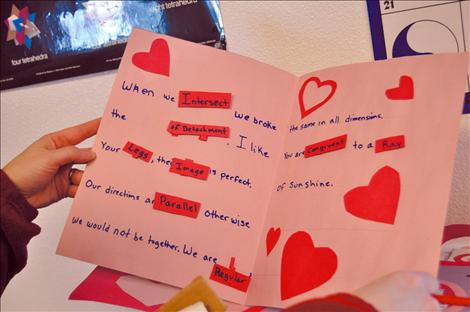 eight tetrahedra
four tetrahedra
21
When we Intersect we broke
the of Detachment. I like
Your Legs, the Image is perfect.
Our directins are Parallel otherwise
We would not be together. We are Regular
the same in all dimensions.
You are Congruent to a Ray
of Sunshine.